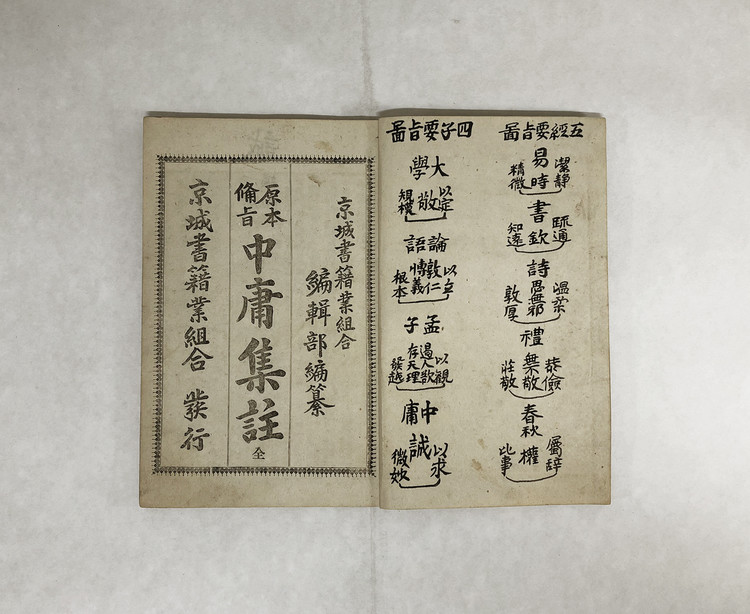 五經要旨圖
易
潔静
時
精微
書
疏通
欽
知遠
詩
温柔
思無邪
敦厚
禮
恭儉
無敬
莊敬
春秋
屬辭
權
比事
四子要旨圖
大學
以定
敬
規模
論語
以立
敦仁
博義
根本
孟子
以觀
遏人欲
存天理
發越
中庸
以求
誠
微妙
京城書籍業組合
編輯部編纂
原本
備旨
中庸集註
全
京城書籍業組合 發行